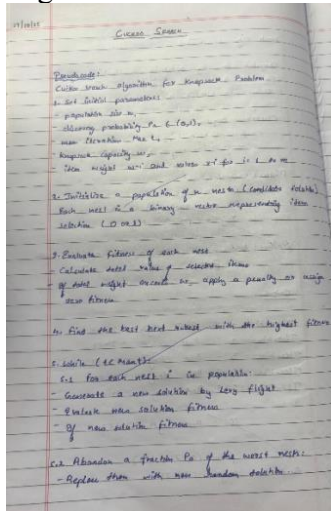 Cuckoo Search
Pseudocode:
Cuckoo search algorithm for Knapsack Problem
1. Set initial parameters:
- population size n,
- discovery probability Pa
- max iteration Max t,
- Knapsack capacity w,
- item weight and values for i = 1 to m
2. Initialize a population of n nests (candidate solution)
Each nest is a binary vector representing item
selection (0 or 1)
3. Evaluate fitness of each nest
- Calculate total value of selected items
- If total weight exceeds w, apply a penalty or assign
zero fitness
4. Find the best nest with the highest fitness
5. While (t < Max t):
5.1 For each nest i in population:
- Generate a new solution by Levy flight
- Evaluate new solution fitness
- If new solution fitness
5.2 Abandon a fraction Pa of the worst nests:
- Replace them with new random solution